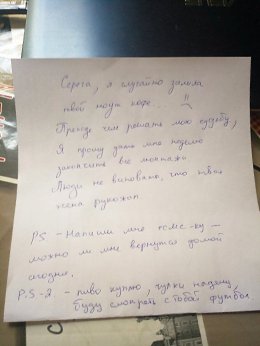 Серега, я случайно залила
твой ноут кофе...
Прежде чем решать мою судьбу,
Я прошу дать мне неделю
закончить все монтажи
Люди не виноваты, что твоя
жена рукожоп
PS - Напиши мне тоже
можно ли мне вернуться домой
сегодня.
P.S-2 - пиво куплю, чулки надену,
буду смотреть с тобой футбол